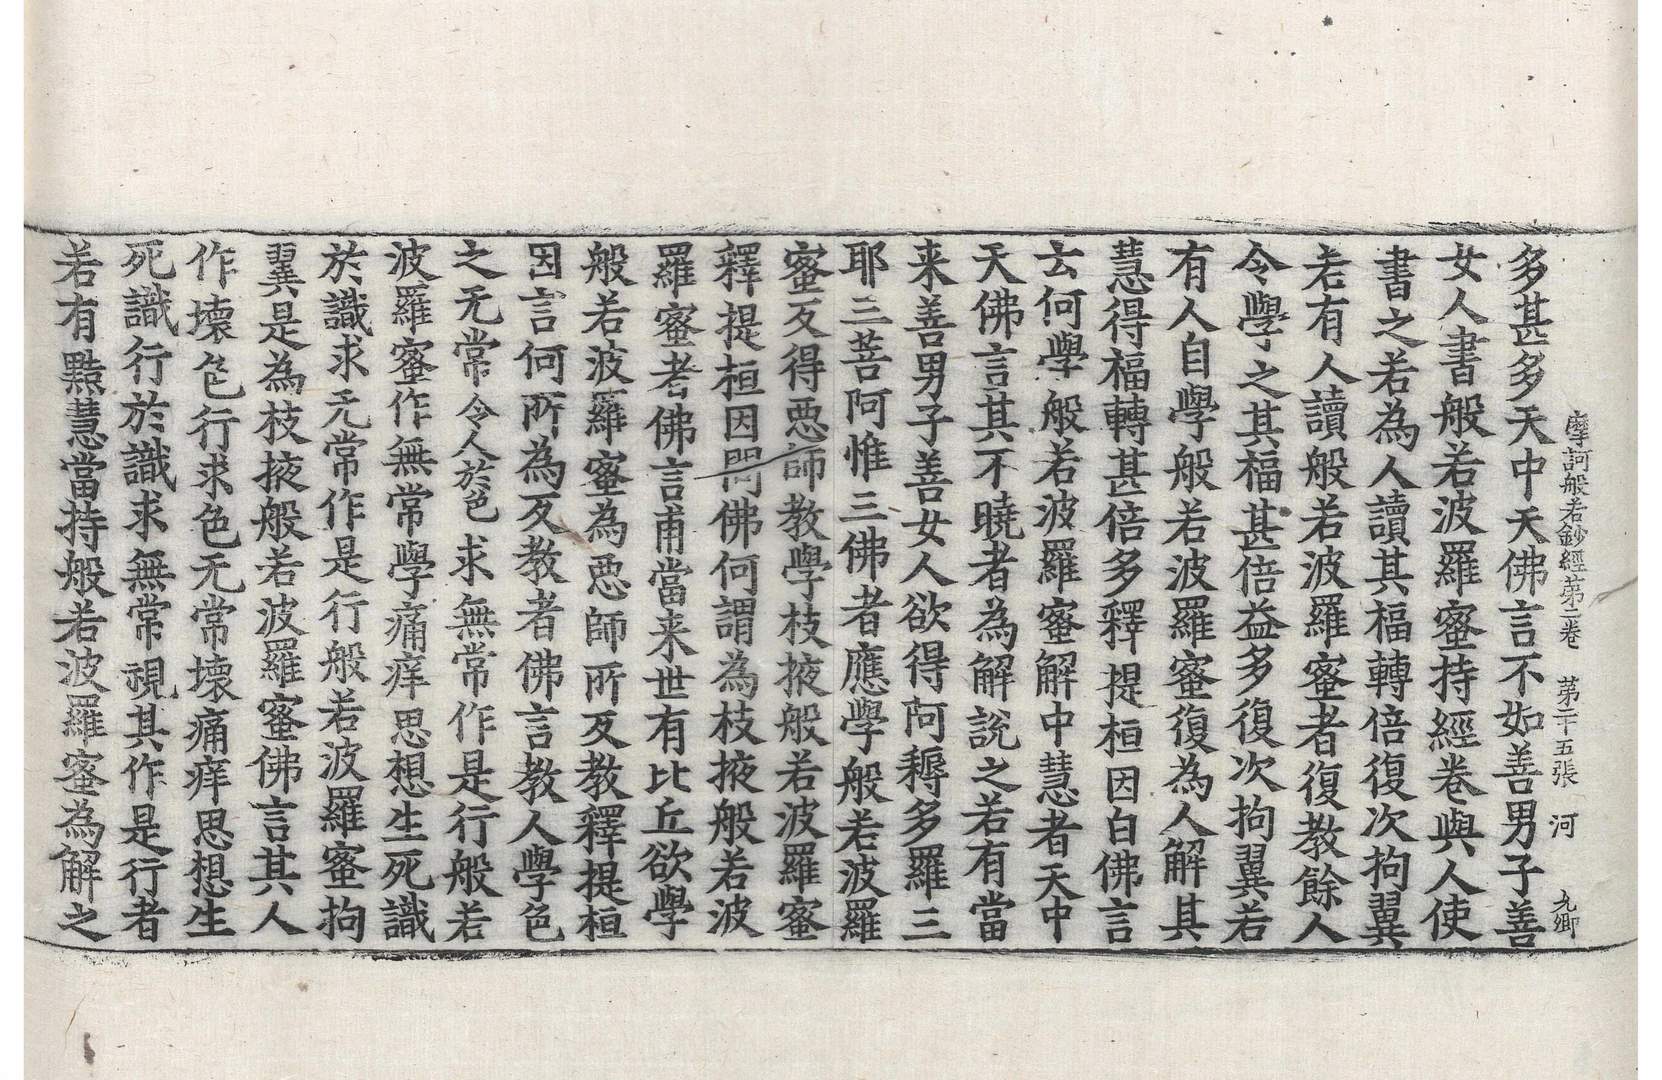 摩訶般若鈔經苐二卷　苐二十五張　河　九卿
多甚多天中天佛言不如善男子善
女人書般若波羅蜜持經卷與人使
書之若為人讀其福轉倍復次拘翼
若有人讀般若波羅蜜者復教餘人
令學之其福甚倍益多復次拘翼若
有人自學般若波羅蜜復為人解其
慧得福轉甚倍多釋提桓因白佛言
云何學般若波羅蜜解中慧者天中
天佛言其不曉者為解說之若有當
来善男子善女人欲得阿耨多羅三
耶三菩阿惟三佛者應學般若波羅
蜜反得惡師教學枝掖般若波羅蜜
釋提桓因問佛何謂為枝掖般若波
羅蜜者佛言甫當来世有比丘欲學
般若波羅蜜為惡師所反教釋提桓
因言何所為反教者佛言教人學色
之无常令人於色求無常作是行般若
波羅蜜作無常學痛痒思想生死識
於識求无常作是行般若波羅蜜拘
翼是為枝掖般若波羅蜜佛言其人
作壞色行求色无常壞痛痒思想生
死識行於識求無常視其作是行者
若有黠慧當持般若波羅蜜為解之